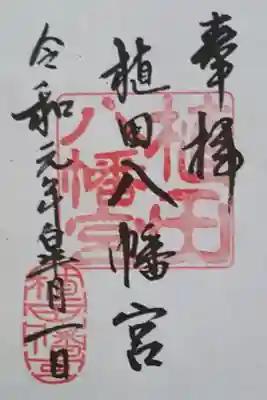 奉拝
植田八幡宮
令和元年皐月一日
植田八幡宮